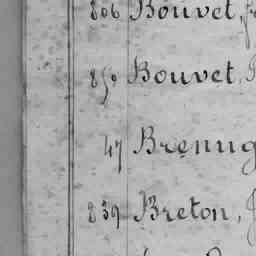 806 Bouvet, 
850 Bouvet,
47
839 Breton,